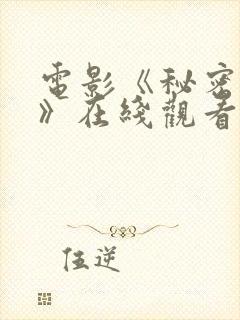 電影《秘密
》在綫觀看
伍逆